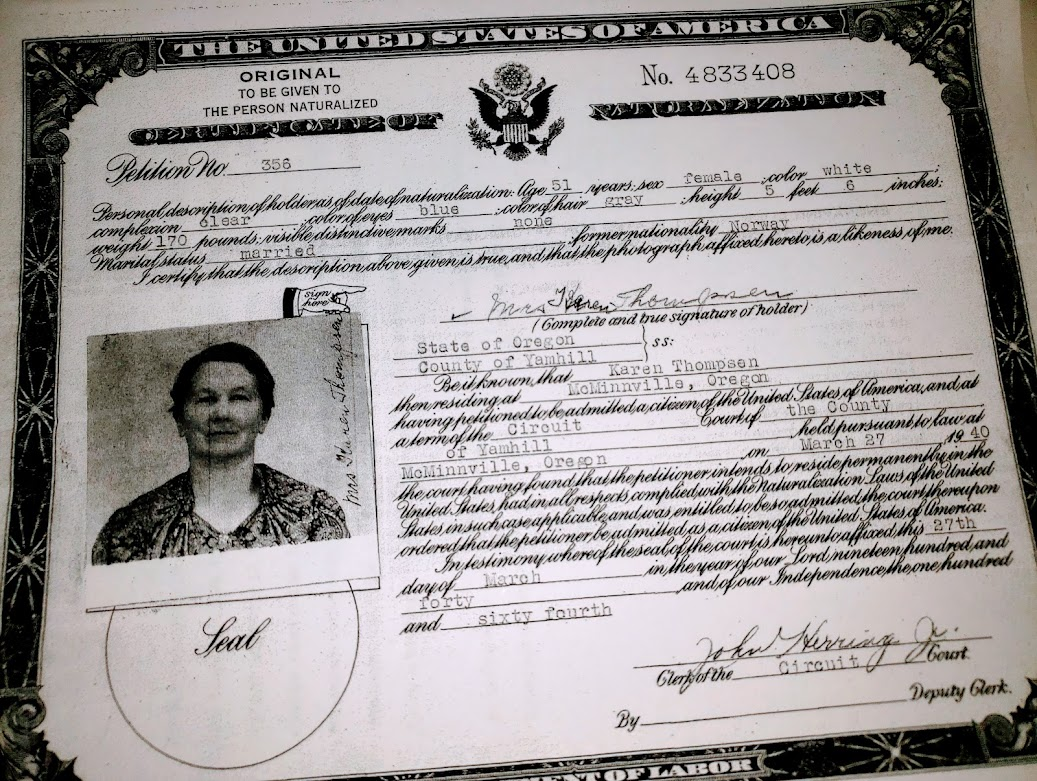 THE UNITED STATES OF AMERICA
ORIGINAL
TO BE GIVEN TO
THE PERSON NATURALIZED
No. 4833408
CERTIFICATE OF NATURALIZATION
Petition No. 356
Personal description of holder as of date of naturalization: Age 51 years; sex female; color white
complexion clear; color of eyes blue; color of hair gray; height 5 feet 6 inches;
weight 170 pounds; visible distinctive marks none
Marital status married; former nationality Norway
I certify that the description above given is true, and that the photograph affixed hereto is a likeness of me.
sign here
Mrs Karen Thompsen
(Complete and true signature of holder)
Mrs Karen Thompsen
State of Oregon
County of Yamhill } ss:
Be it known that Karen Thompsen
then residing at McMinnville, Oregon
having petitioned to be admitted a citizen of the United States of America, and at
a term of the Circuit Court of the County
of Yamhill held pursuant to law at
McMinnville, Oregon on March 27 1940
the court having found that the petitioner intends to reside permanently in the
United States, had in all respects complied with the Naturalization Laws of the United
States in such case applicable, and was entitled to be so admitted, the court thereupon
ordered that the petitioner be admitted as a citizen of the United States of America.
In testimony whereof the seal of the court is hereunto affixed this 27th
day of March in the year of our Lord nineteen hundred and
forty and of our Independence the one hundred
and sixty fourth
Seal
John Herring Jr.
Clerk of the Circuit Court.
By Deputy Clerk.
ENT OF LABOR